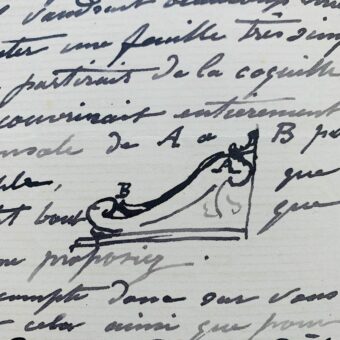 vaudrait beaucoup
une feuille très sim
partirait de la coquille
couvrirait entièrement
console de A a B po
B
A
ple, que
bout que
me proposiez.
compte donc sur vous
cela ainsi que pour